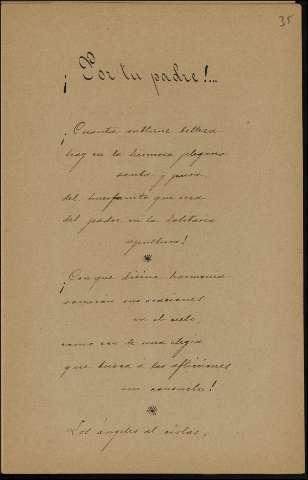 35
¡Por tu padre!...
¡Cuanta sublime belleza
hay en la hermosa plegaria
santa y pura
del huerfanito que reza
del padre en la solitaria
sepultura!
¡Con que divina harmonia
sonarán sus oraciones
en el cielo,
como en una elegia
que busca á las aflicciones
un consuelo!
Los ángeles al oirlas,